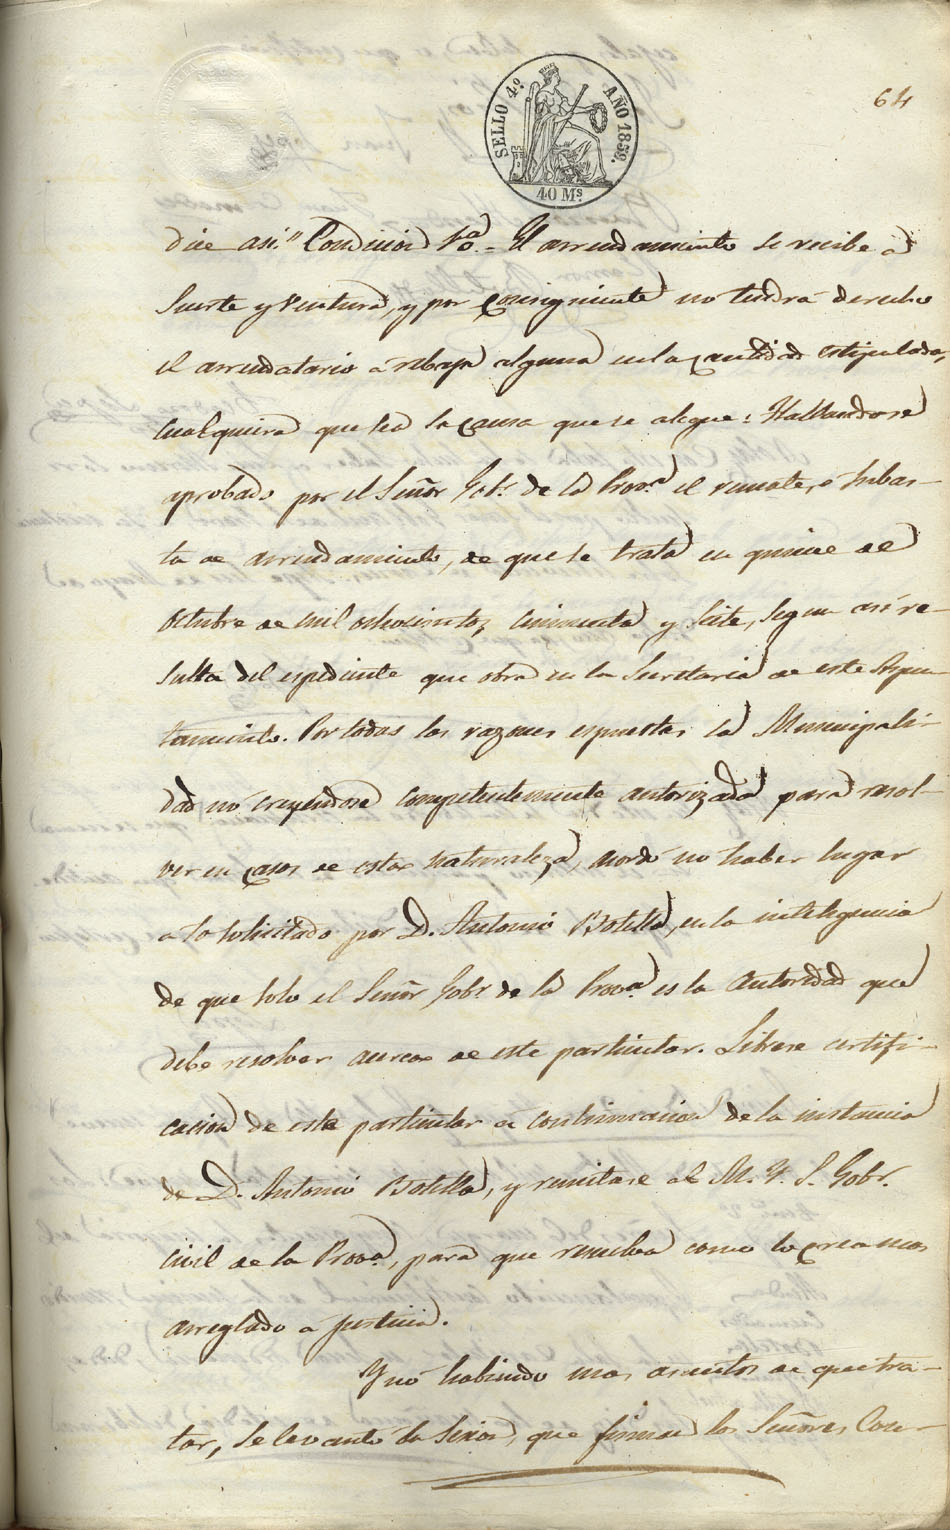 64
SELLO 4.º AÑO 1859.
40 Ms
dice asi." Condicion 1.ª = El arrendamiento se recibe á
suerte y ventura, y por consiguiente no tendrá derecho
el arrendatario á rebaja alguna en la cantidad estipulada,
cualquiera que sea la causa que se alegue: Hallandose
aprobado por el Señor Gobr. de la Prova. el remate, ó subas-
ta de arrendamiento, de que se trata en quince de
Octubre de mil ochocientos, cincuenta y siete, segun asi re-
sulta del espediente que obra en la Secretaria de este Ayun-
tamiento. Por todas las razones espuestas la Municipali-
dad nó creyendose competentemente autorizada para resol-
ver en casos de esta naturaleza, acordó no haber lugar
a lo solicitado por D. Antonio Botella, en la inteligencia
de que solo el Señor Gobr. de la Prova. es la Autoridad que
debe resolver acerca de este particular. Librese certifi-
cacion de este particular á continuacion de la instancia
de D. Antonio Botella, y remitase al M. Y. S. Gobr.
civil de la Prova., para que resuelva como lo crea mas
arreglado á justicia.
Y nó habiendo mas asuntos de que tra-
tar, se levantó la Sesion, que firman los Señores Con-